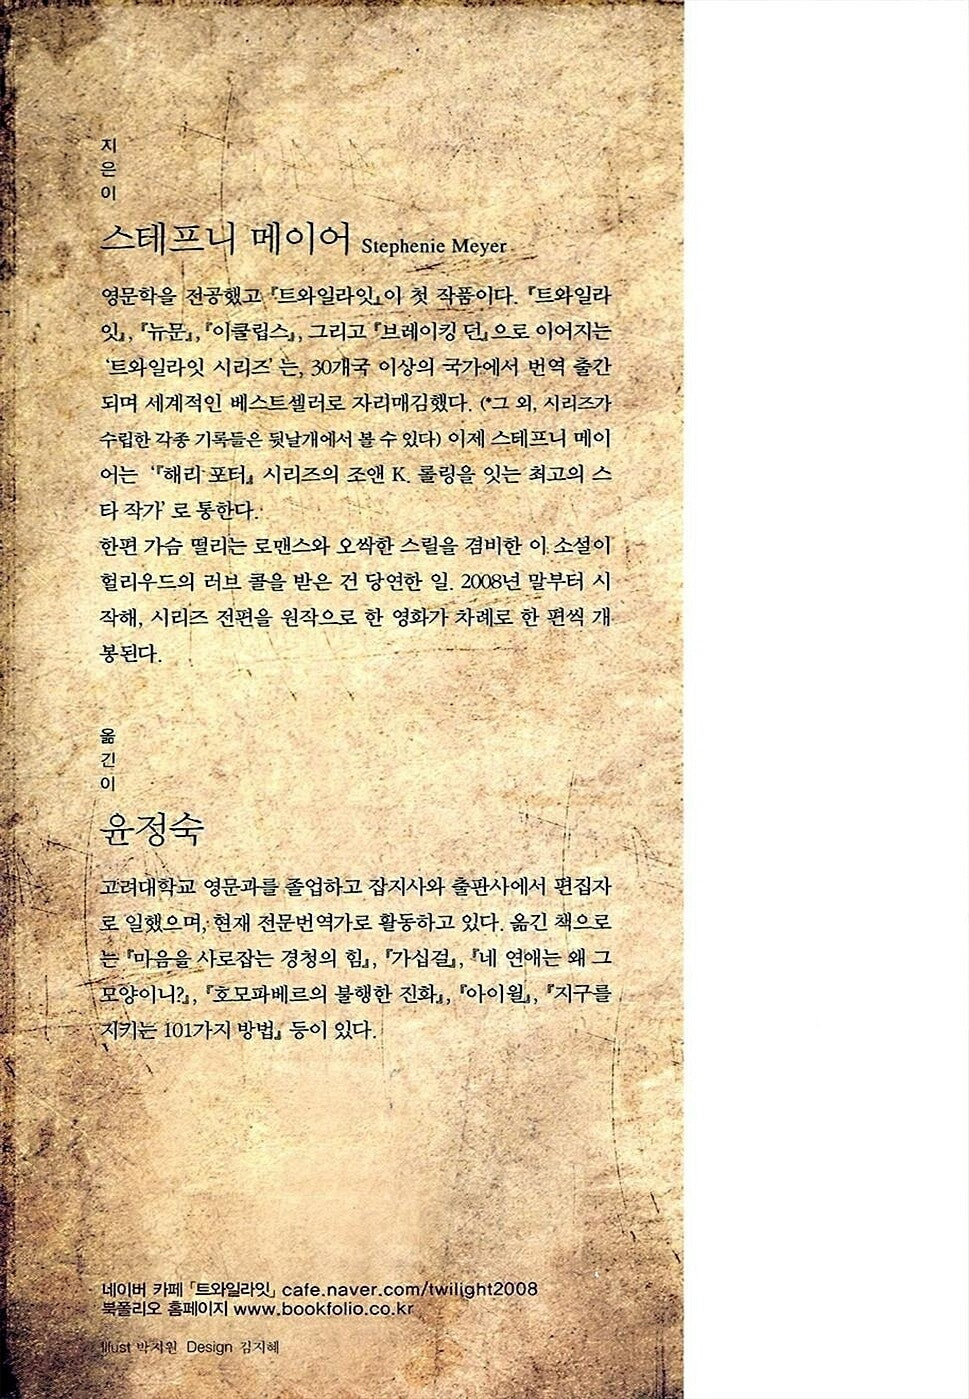 지은이
스테프니 메이어 Stephenie Meyer
영문학을 전공했고 『트와일라잇』이 첫 작품이다. 『트와일라
잇』, 『뉴문』, 『이클립스』, 그리고 『브레이킹 던』으로 이어지는
‘트와일라잇 시리즈’는, 30개국 이상의 국가에서 번역 출간
되며 세계적인 베스트셀러로 자리매김했다. (*그 외, 시리즈가
수립한 각종 기록들은 뒷날개에서 볼 수 있다) 이제 스테프니 메이
어는 ‘『해리 포터』 시리즈의 조앤 K. 롤링을 잇는 최고의 스
타 작가’로 통한다.
한편 가슴 떨리는 로맨스와 오싹한 스릴을 겸비한 이 소설이
헐리우드의 러브 콜을 받은 건 당연한 일. 2008년 말부터 시
작해, 시리즈 전편을 원작으로 한 영화가 차례로 한 편씩 개
봉된다.
옮긴이
윤정숙
고려대학교 영문과를 졸업하고 잡지사와 출판사에서 편집자
로 일했으며, 현재 전문번역가로 활동하고 있다. 옮긴 책으로
는 『마음을 사로잡는 경청의 힘』, 『가십걸』, 『네 연애는 왜 그
모양이니?』, 『호모파베르의 불행한 진화』, 『아이윌』, 『지구를
지키는 101가지 방법』 등이 있다.
네이버 카페 「트와일라잇」 cafe.naver.com/twilight2008
북폴리오 홈페이지 www.bookfolio.co.kr
Illust 박지원 Design 김지혜